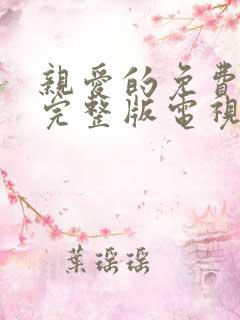 親愛的免費
完整版電視
葉瑶瑶